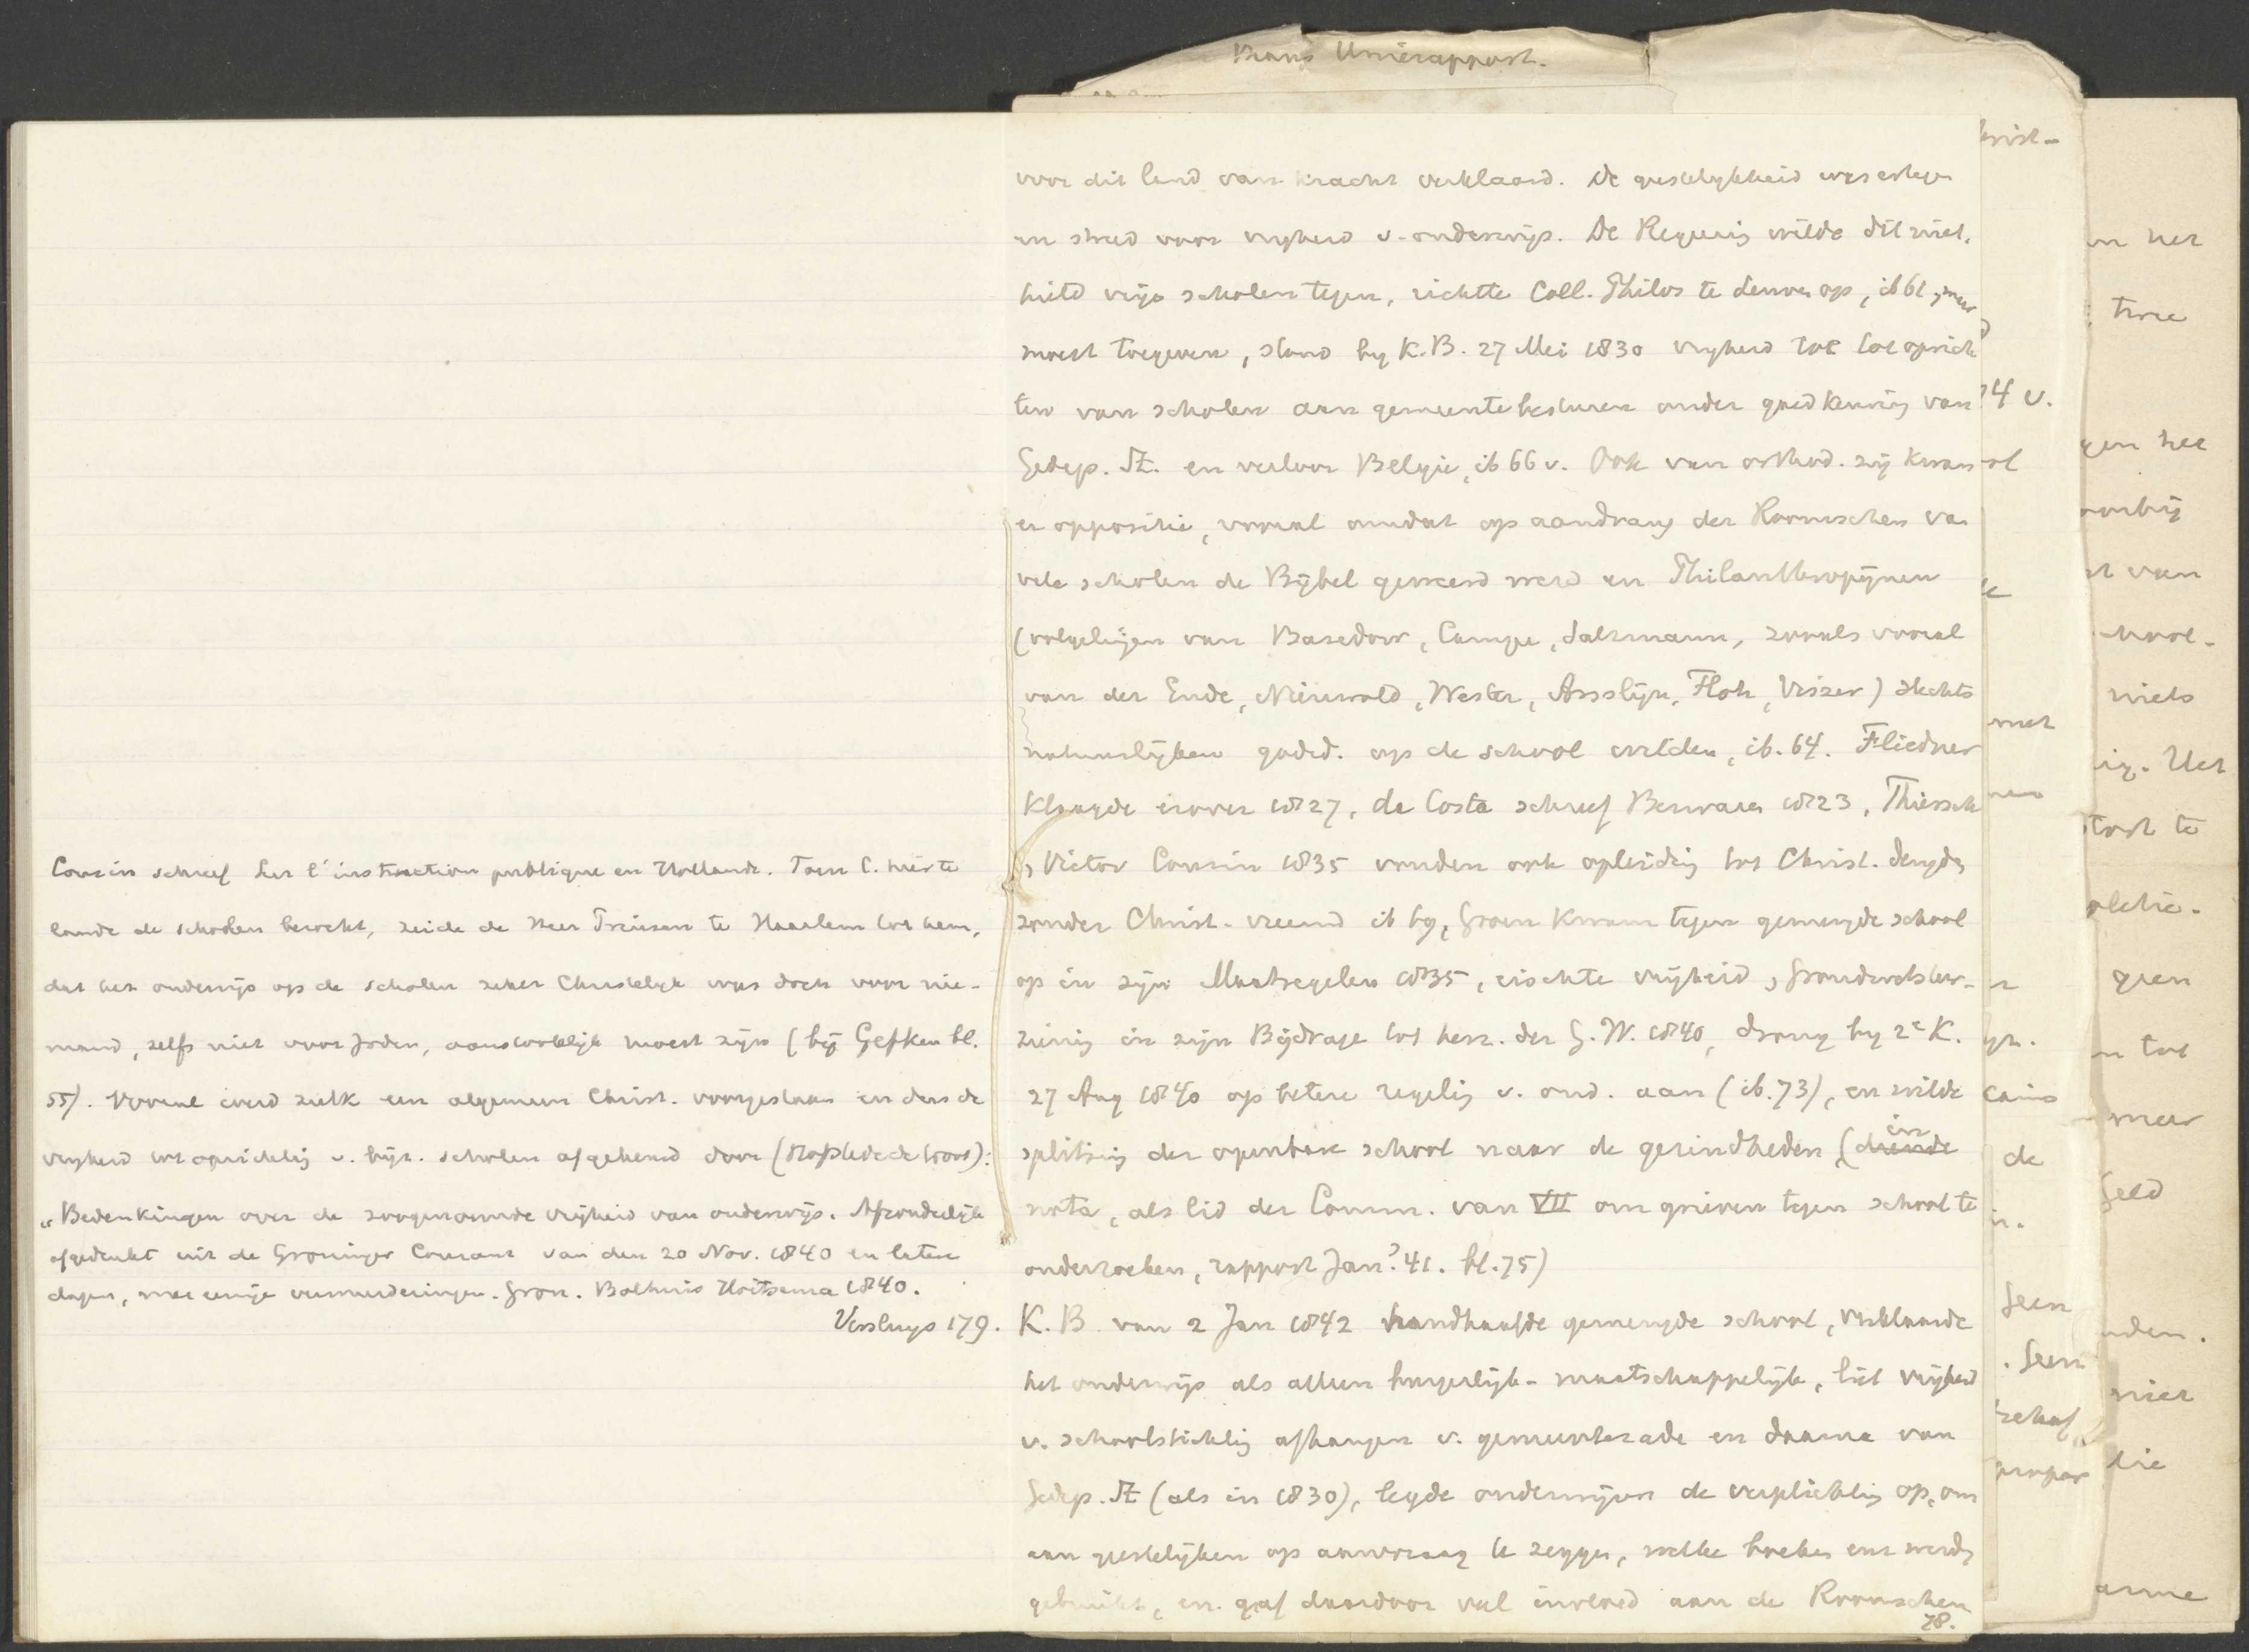 Kranz Unierapport.
Cousin schreef Sur l'instruction publique en Hollande. Toen C. hier te
lande de scholen bezocht, zeide de Heer Prinsen te Haarlem tot hem,
dat het onderwijs op de scholen zeker Christelijk was doch voor nie-
mand, zelfs niet voor Joden, aanstootelijk moest zijn (bij Gefken bl.
55). Vooral werd zulk een algemeen Christ. voorgestaan en dus de
vrijheid tot oprichting v. bijz. scholen afgekeurd door (Hofstede de Groot):
"Bedenkingen over de zoogenaamde vrijheid van onderwijs. Afzonderlijk
afgedrukt uit de Groninger Courant van den 20 Nov. 1840 en latere
dagen, met eenige vermeerderingen. Gron. Bolhuis Hoitsema 1840.
Versluys 179.
voor dit land van kracht verklaard. De geestelijkheid was ertegen
en streed voor vrijheid v. onderwijs. De Regeering wilde dit niet,
hield vrije scholen tegen, richtte Coll. Philos te Leuven op, ib 61, maar
moest toegeven, stond bij K.B. 27 Mei 1830 vrijheid toe tot oprich
ten van scholen aan gemeentebesturen onder goedkeuring van
Gedep. St. en verloor Belgie, ib 66 v. Ook van orthod. zij kwam
er oppositie, vooral omdat op aandrang der Roomschen van
vele scholen de Bijbel geweerd werd en Philanthropijnen
(volgelingen van Basedow, Campe, Salzmann, zooals vooral
van der Ende, Nieuwold, Wester, Anslijn, Floh, Visser) slechts
natuurlijken godsd. op de school wilden, ib. 64. Fliedner
klaagde erover 1827, da Costa schreef Bezwaren 1823, Thiersch
, Victor Cousin 1835 vonden ook opleiding tot Christ. deugden
zonder Christ. vreemd ib 69, Groen kwam tegen gemengde school
op in zijn Maatregelen 1835, eischte vrijheid, Grondwetsher-
ziening in zijn Bijdrage tot herz. der G.W. 1840, drong bij 2e K.
27 Aug 1840 op betere regeling v. ond. aan (ib. 73), en wilde
splitsing der openbare school naar de gezindheden (in
nota, als lid der Comm. van VII om grieven tegen school te
onderzoeken, rapport Jan? 41. bl. 75)
K.B. van 2 Jan 1842 handhaafde gemengde school, verklaarde
het onderwijs als alleen burgerlijk-maatschappelijk, liet vrijheid
v. schoolstichting afhangen v. gemeenterade en daarna van
Gedep. St (als in 1830), legde onderwijzers de verplichting op, om
aan geestelijken op aanvraag te zeggen, welke boeken enz werden
gebruikt, en gaf daardoor veel invloed aan de Roomschen
78.